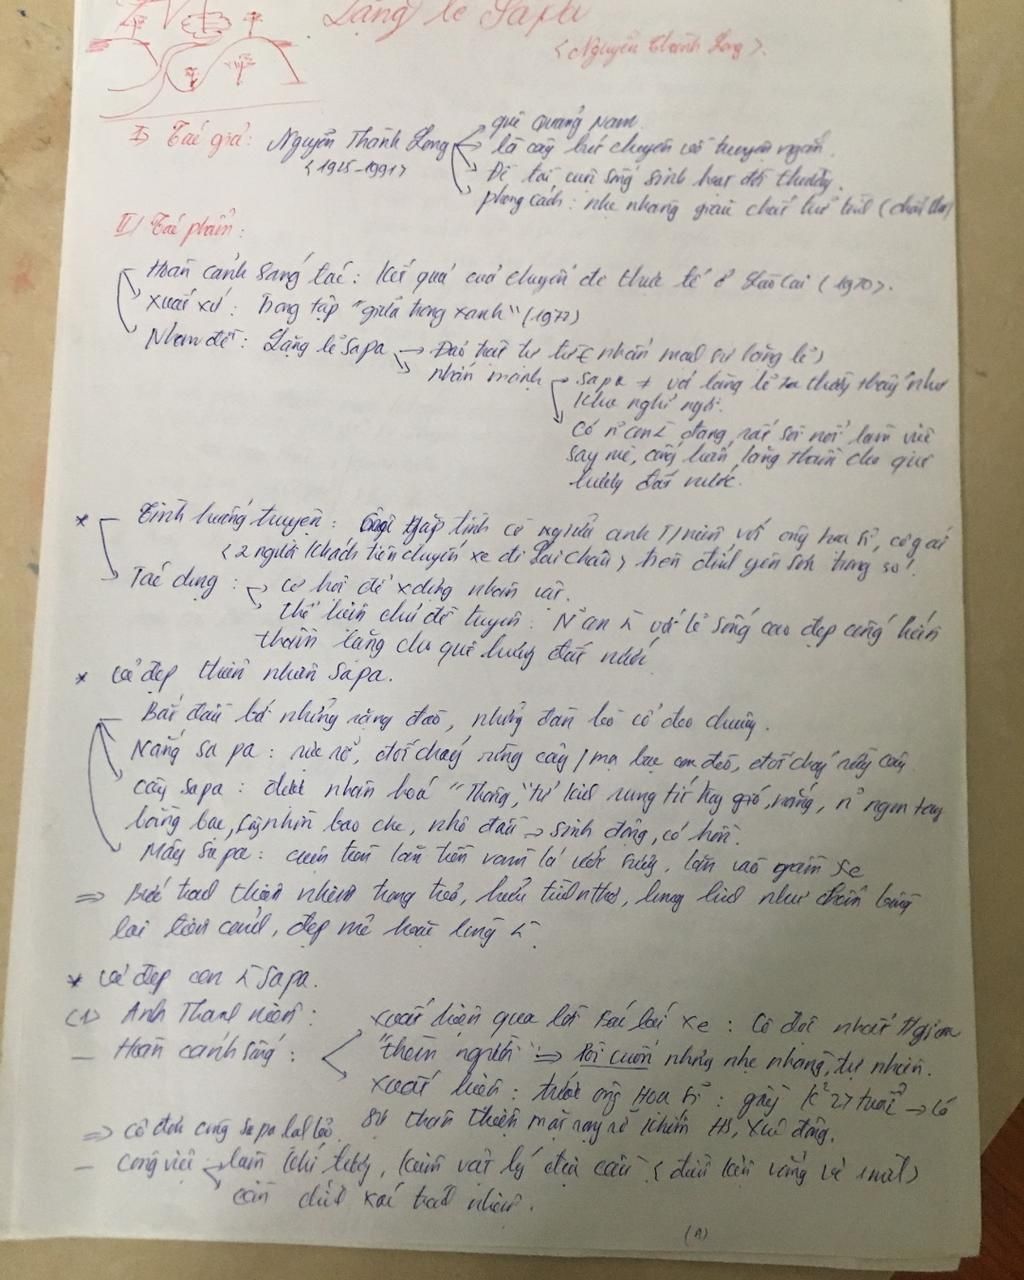 Lặng lẽ Sapa
<Nguyễn Thành Long>.
I> Tác giả: Nguyễn Thành Long
<1925-1991>
quê Quảng Nam.
là cây bút chuyên về truyện ngắn.
Đề tài cuộc sống sinh hoạt đời thường.
phong cách: nhẹ nhàng giàu chất trữ tình (chất thơ)
II/ Tác phẩm:
Hoàn cảnh sáng tác: Kết quả của chuyến đi thực tế ở Lào Cai (1970).
Xuất xứ: Trong tập "giữa trong xanh" (1972)
Nhan đề: Lặng lẽ Sapa → Đảo trật tự từ (nhấn mạnh sự lặng lẽ)
nhấn mạnh
Sapa + với lặng lẽ thấy như
khu nghỉ ngơi.
Có n~ con đang rất sôi nổi làm việc
say mê, cống hiến lặng thầm cho quê
hương đất nước.
* Tình huống truyện: Cuộc gặp tình cờ nghĩa anh T/niên với ông họa sĩ, cô gái
<2 người khách trên chuyến xe đi Lai Châu> trên đỉnh Yên Sơn
Tác dụng: cơ hội để xdựng nhân vật.
thể hiện chủ đề truyện: với lẽ sống cao đẹp cống hiến
thầm lặng cho quê hương đất nước
* Vẻ đẹp thiên nhiên Sapa.
Bắt đầu bằng những rặng đào, những đàn bò cổ đeo chuông.
Nắng Sa pa: rực rỡ, đốt cháy rừng cây / mạ bạc con đèo, đốt cháy rừng cây
Cây Sapa: được nhân hoá "Thông," tử kinh rung tít tay gió, nắng, n~ ngón tay
bằng bạc, cây nhìn bao che, nhô đầu → sinh động, có hồn.
Mây Sa pa: cuộn tròn lăn trên vòm lá ướt sương, lăn vào gầm xe
⇒ Bức tranh thiên nhiên trong trẻo, hữu tình, thơ, lung linh như
đẹp mê hoặc lòng
* Vẻ đẹp con Sapa.
(1) Anh Thanh niên:
- Hoàn cảnh sống:
xuất hiện qua lời Bác lái xe: Cô độc nhất
"thèm người" ⇒ Lôi cuốn nhưng nhẹ nhàng, tự nhiên.
xuất hiện: trước ông Hoạ sĩ: 27 tuổi → có
thân thiện mặt rạng rỡ khiến HS, xúc động.
⇒ cô đơn
- Công việc làm khí tượng, kiêm vật lý địa cầu <
cần chính xác
(1)